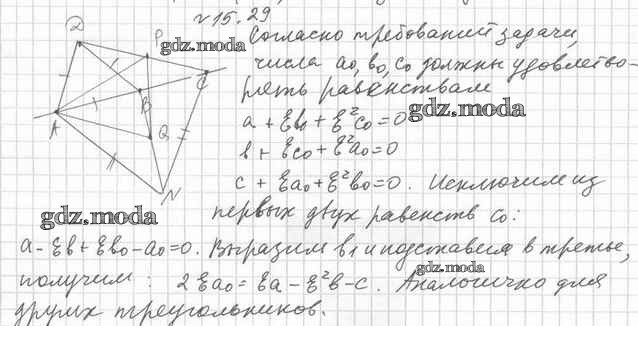 №15.29
D P C B A Q N
Согласно требований задачи,
числа a₀, b₀, c₀ должны удовлетво-
рять равенствам
a + εb₀ + ε²c₀ = 0
b + εc₀ + ε²a₀ = 0
c + εa₀ + ε²b₀ = 0. Исключим из
первых двух равенств c₀:
a - εb + εb₀ - a₀ = 0. Выразим b₁ и подставим в третье,
получим: 2εa₀ = εa - ε²b - c. Аналогично для
других треугольников.
gdz.moda
gdz.moda
gdz.moda
gdz.moda